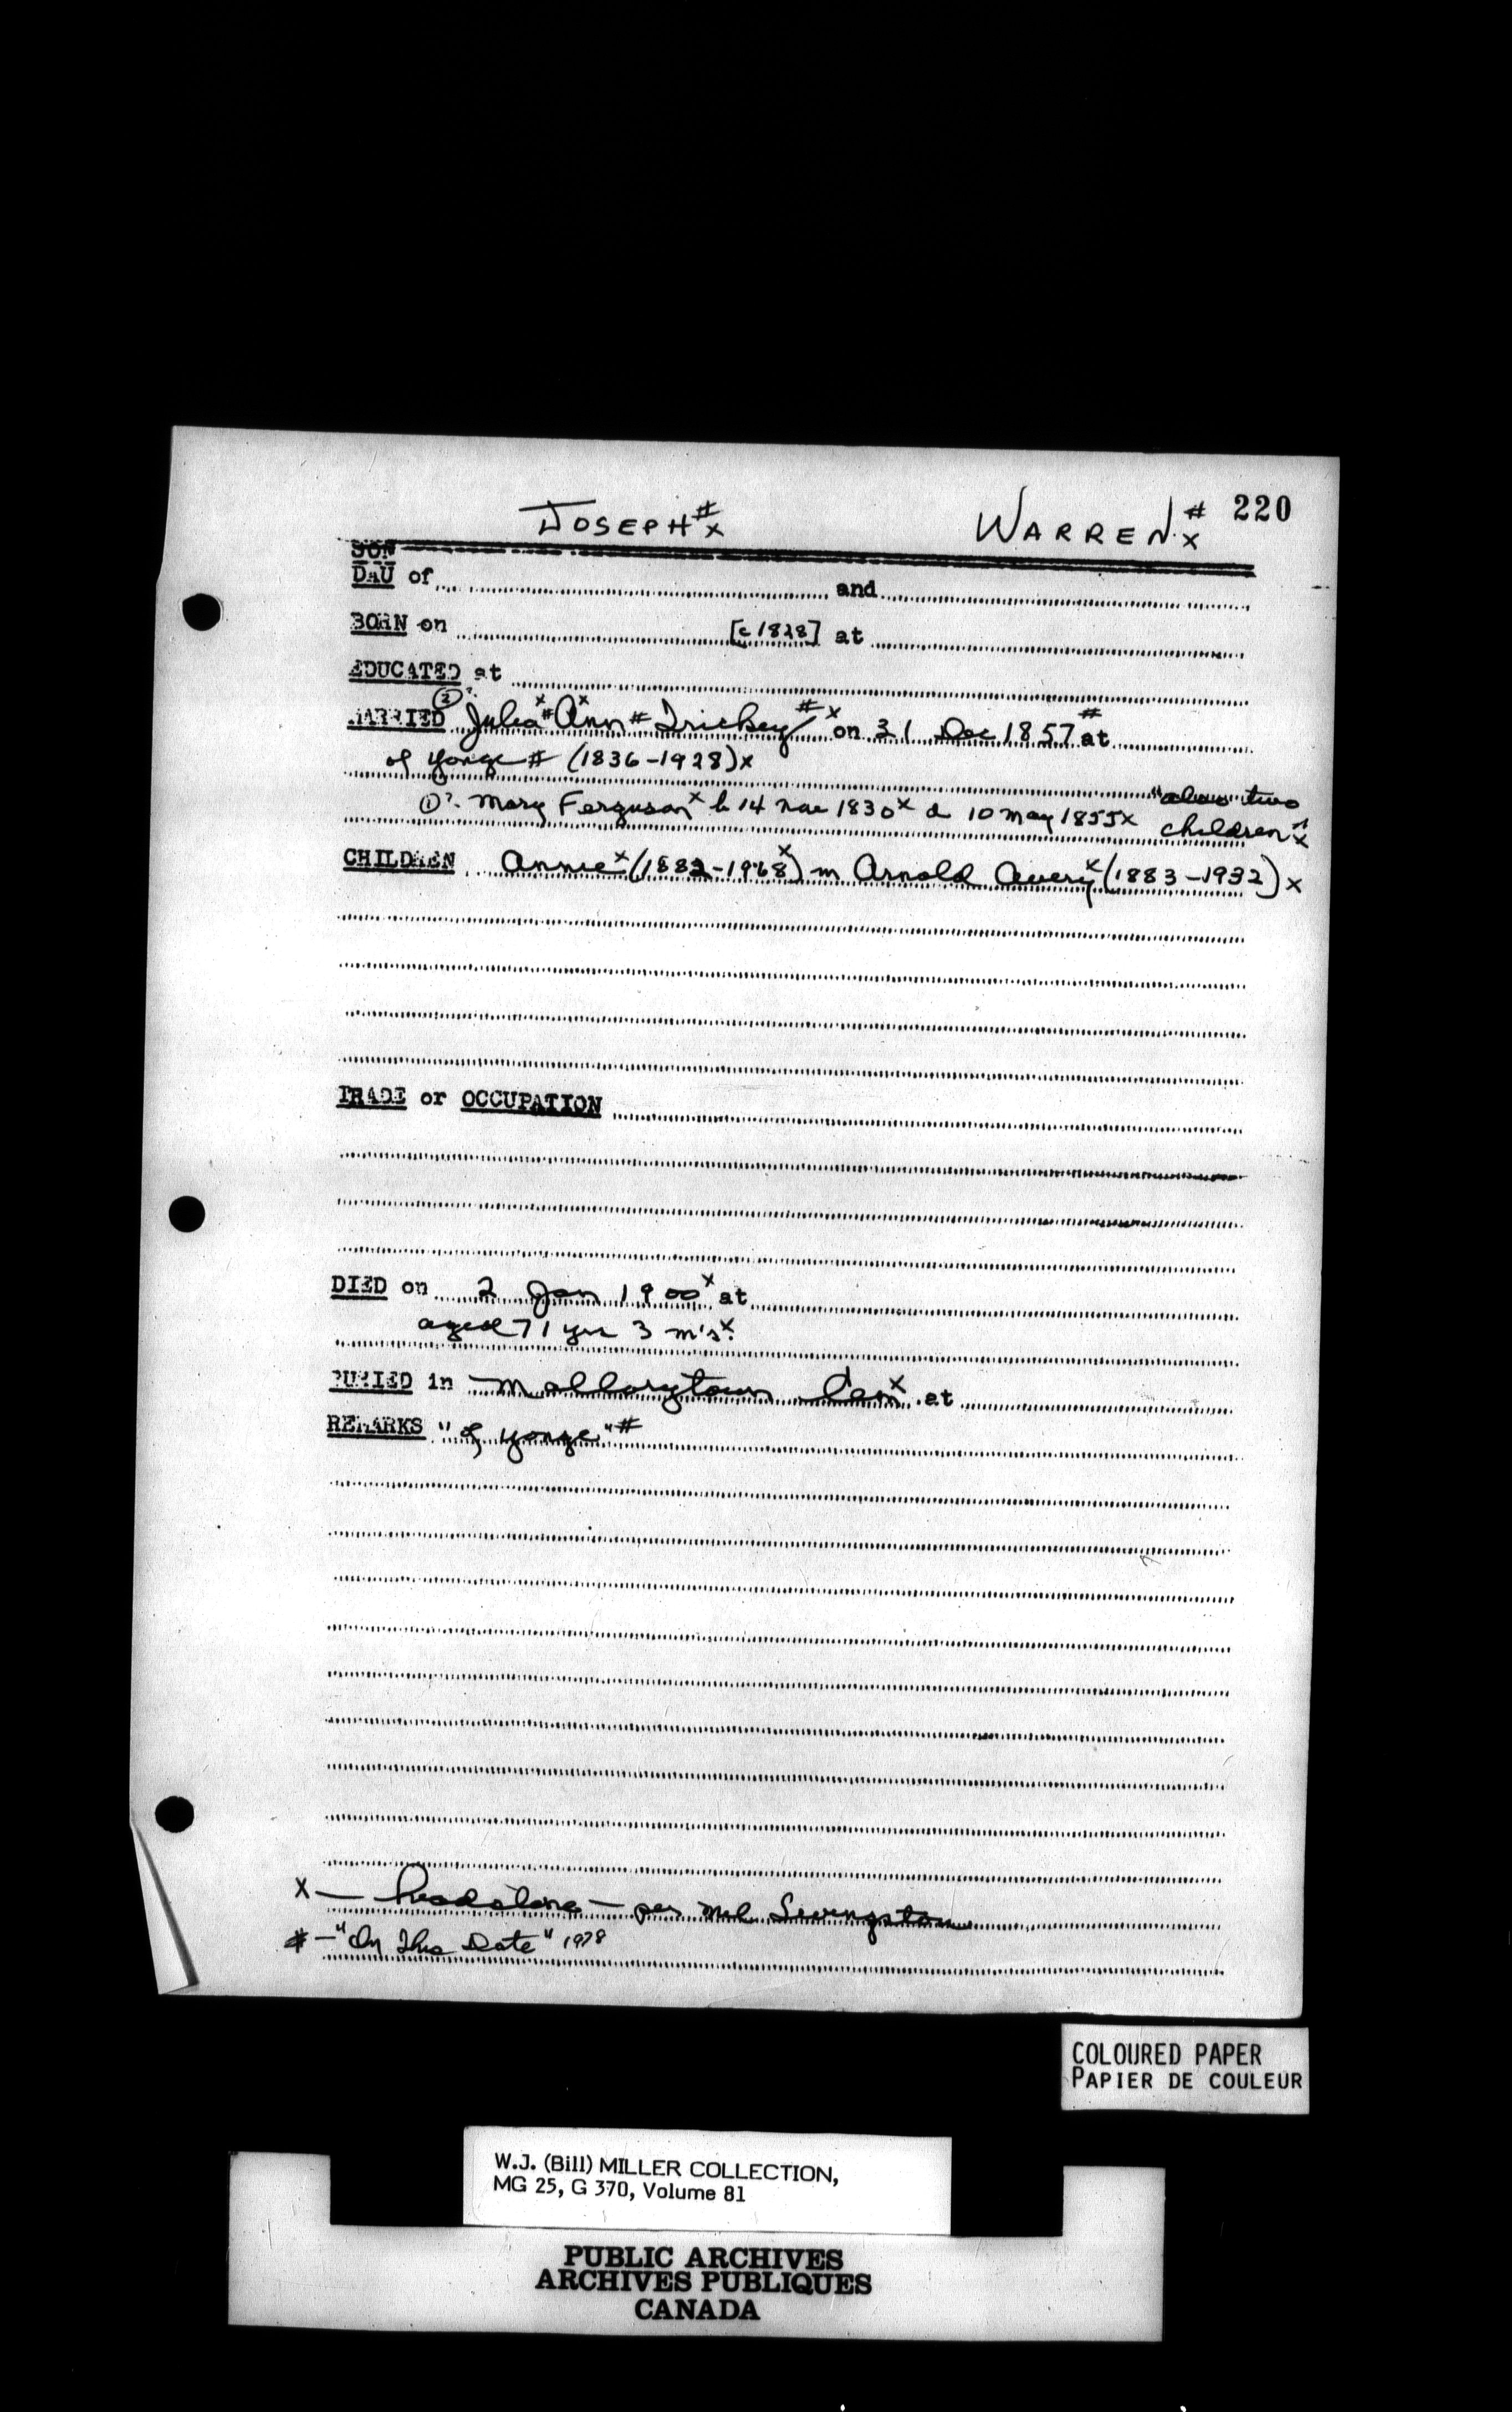 JOSEPH # x WARREN # x 220
SON
DAU of and
BORN on [c 1828] at
EDUCATED at
MARRIED ②? Julia x # Ann x # Trickey # x on 31 Dec 1857 # at
of Yonge # (1836-1928) x
①? Mary Ferguson x b 14 Mar 1830 x d 10 May 1855 x "also two
children" x
CHILDREN Annie x (1882-1968) x m Arnold Avery x (1883-1932) x
TRADE or OCCUPATION
DIED on 2 Jan 1900 x at
aged 71 yrs 3 m's x
BURIED in Mallorytown Cem x at
REMARKS "of Yonge" #
x — headstone — per Livingston
# — "On This Date" 1978
COLOURED PAPER
PAPIER DE COULEUR
W.J. (Bill) MILLER COLLECTION,
MG 25, G 370, Volume 81
PUBLIC ARCHIVES
ARCHIVES PUBLIQUES
CANADA